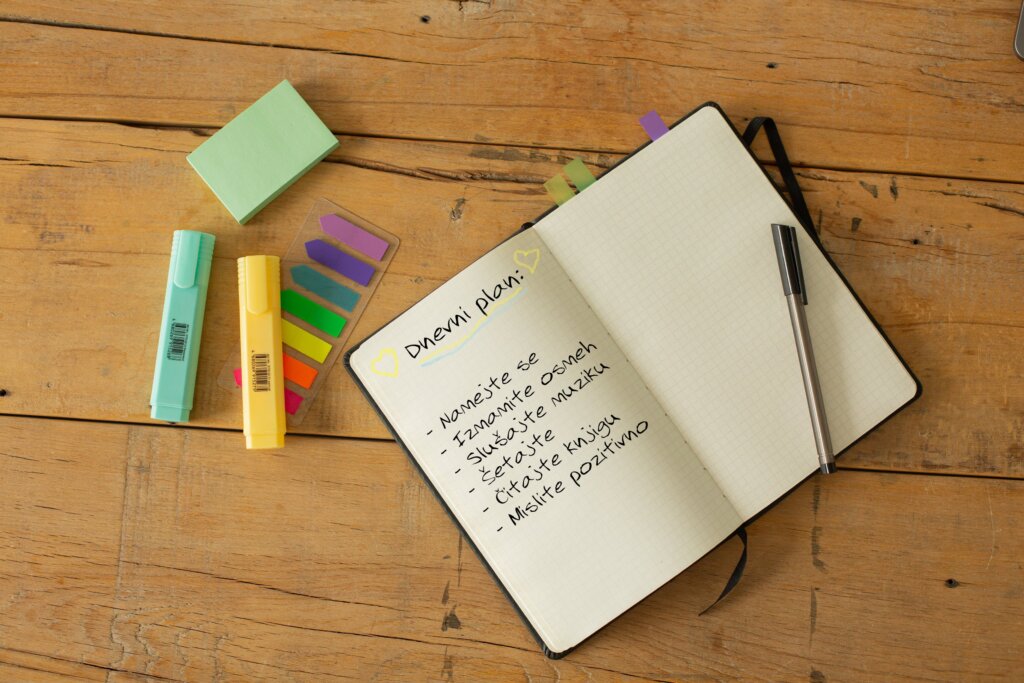 Dnevni plan:
- Namejte se
- Izmamite osmeh
- Slušajte muziku
- Šetajte
- Čitajte knjigu
- Mislite pozitivno